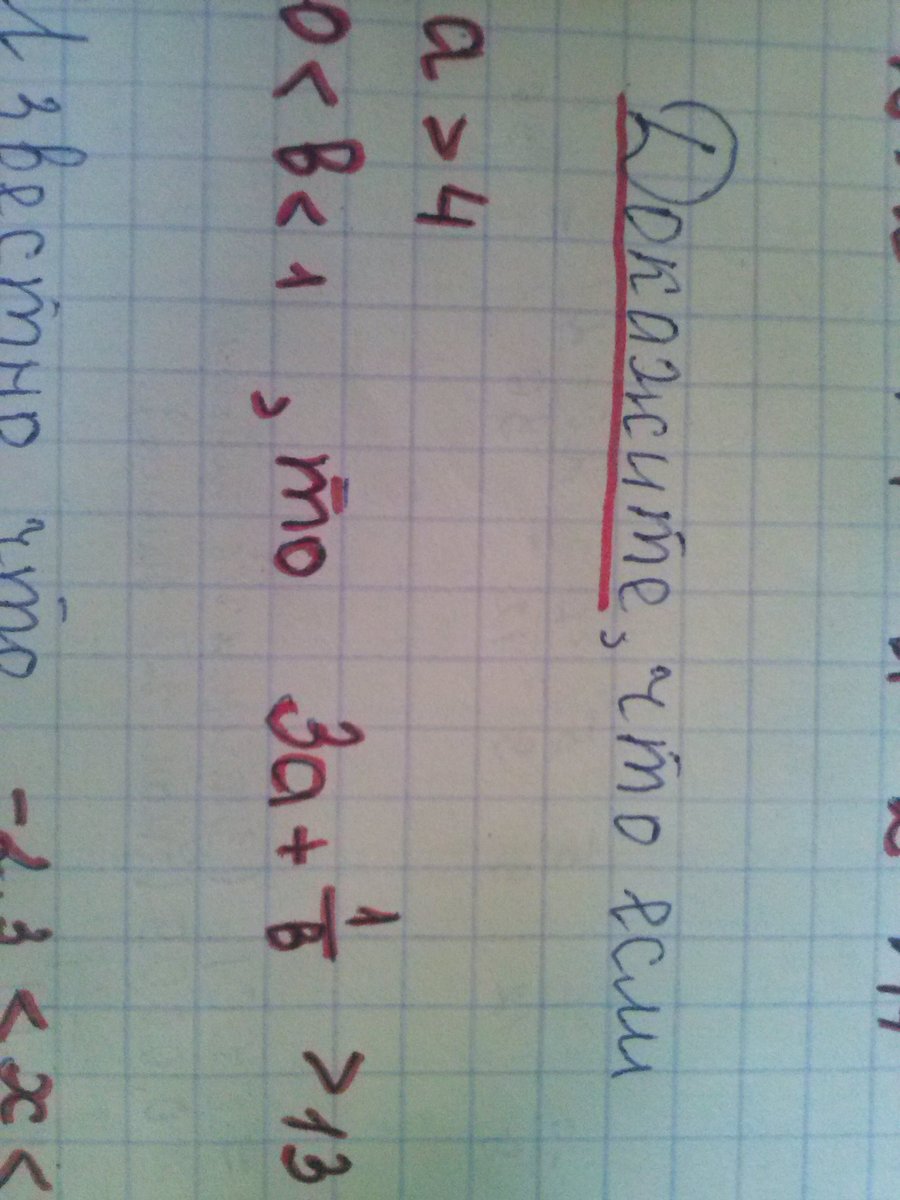 Докажите, что если
а > 4
0 < в < 1 , то 3а + 1/в > 13
Известно что -2,3 < х <